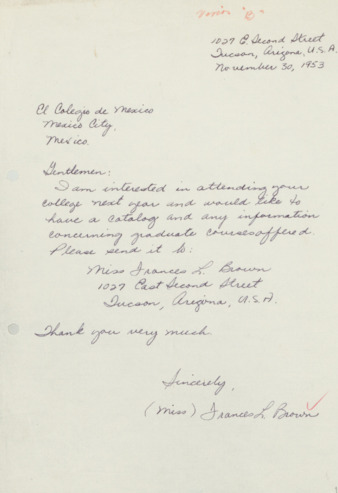 "B"
1027 E. Second Street
Tucson, Arizona, U.S.A.
November 30, 1953
El Colegio de Mexico
Mexico City,
Mexico.
Gentlemen:
I am interested in attending your
college next year and would like to
have a catalog and any information
concerning graduate courses offered.
Please send it to:
Miss Frances L. Brown
1027 East Second Street
Tucson, Arizona, U.S.A.
Thank you very much
Sincerely,
(Miss) Frances L. Brown